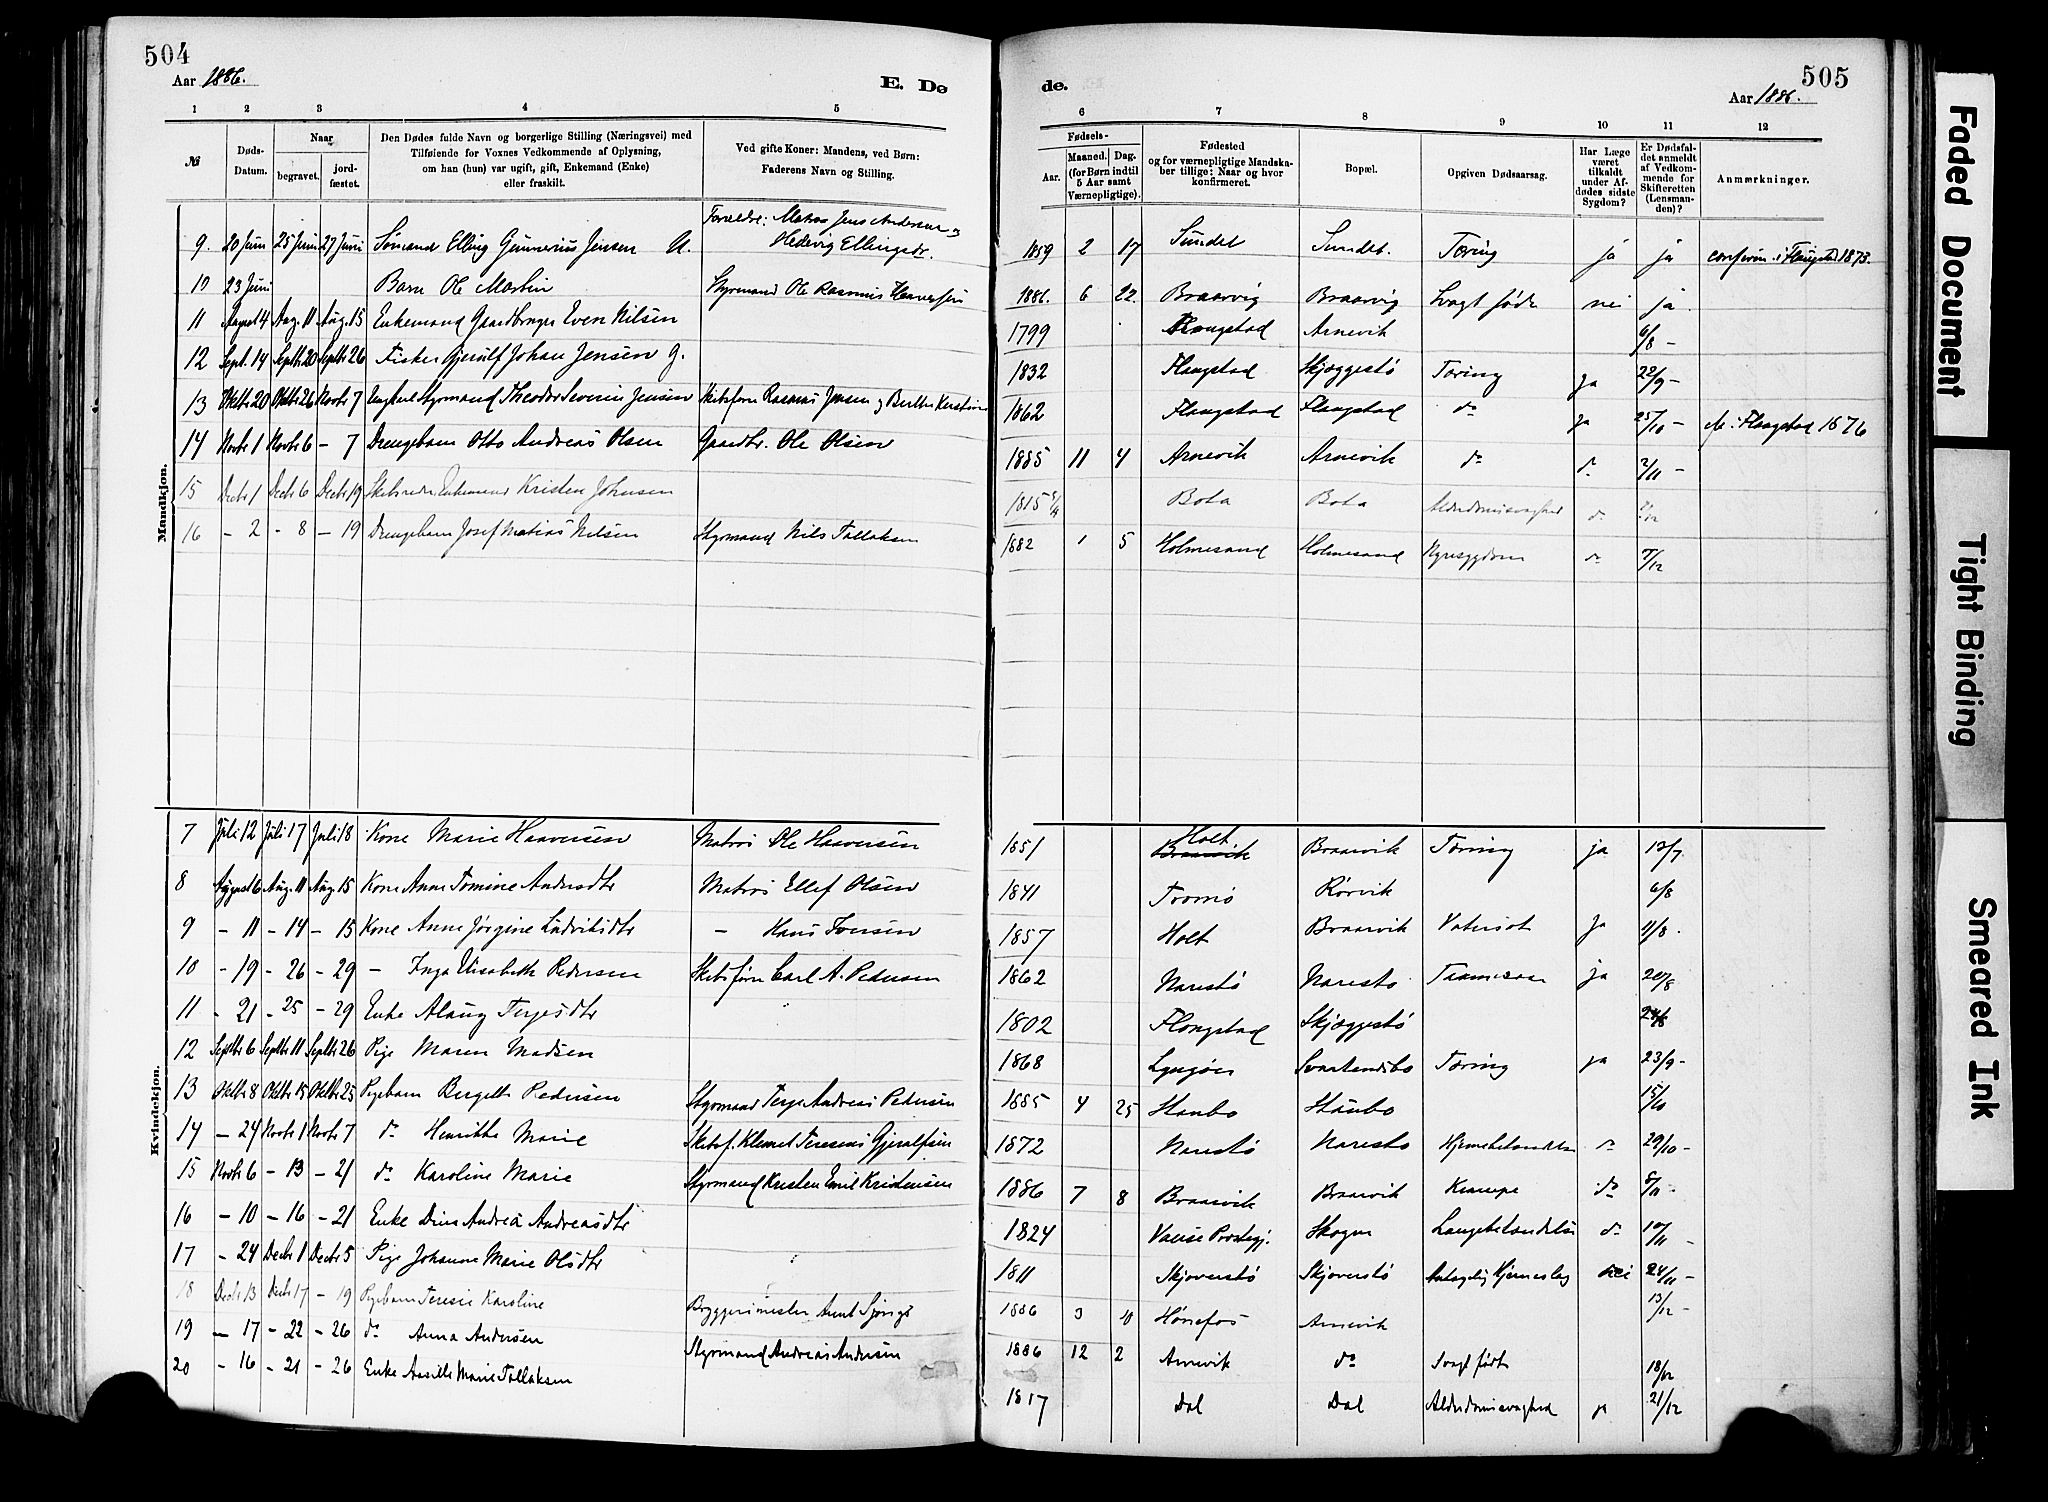 504
Aar 1886.
E. Dø
1 2 3 4 5
№
Døds-Datum.
Naar
begravet.
jord-fæstet.
Den Dødes fulde Navn og borgerlige Stilling (Næringsvei) med
Tilføiende for Voxnes Vedkommende af Oplysning,
om han (hun) var ugift, gift, Enkemand (Enke)
eller fraskilt.
Ved gifte Koner: Mandens, ved Børn:
Faderens Navn og Stilling.
Mandkjøn.
Forældre: Matros Jens Andersen og
9 20 Juni 25 Juni 27 Juni Sømand Elling Gunnerius Jensen U. Hedevig Ellingsdr.
10 23 Juni Barn Ole Martin Styrmand Ole Rasmus Haaversen
11 August 4 Aug. 11 Aug. 15 Enkemand Gaardbruger Even Nilsen
12 Sept. 14 Septbr 20 Septbr 26 Fisker Gjerulf Johan Jensen g.
13 Oktbr 20 Oktbr 26 Novbr 7 Ungkarl Styrmand Theodor Severin Jensen Skibsfører Rasmus Jensen og Berthe Kerstine
14 Novbr 1 Novbr 6 - 7 Drengebarn Otto Andreas Olsen Gaardbr. Ole Olsen
15 Decbr 1 Decbr 6 Decbr 19 Skibsreder Enkemand Kristen Johnsen
16 - 2 - 8 - 19 Drengebarn Josef Matias Nilsen Styrmand Nils Tallaksen
Kvindekjøn.
7 Juli 12 Juli 17 Juli 18 Kone Marie Haaversen Matros Ole Haaversen
8 August 6 Aug. 11 Aug. 15 Kone Anne Tomine Andersdtr Matros Ellef Olsen
9 - 11 - 14 - 15 Kone Anne Jørgine Ludviksdtr - Hans Iversen
10 - 19 - 26 - 29 - Inga Elisabeth Pedersen Skibsfører Carl A. Pedersen
11 - 21 - 25 - 29 Enke Alaug Terjesdtr
12 Septbr 6 Septbr 11 Septbr 26 Pige Maren Madsen
13 Oktbr 8 Oktbr 15 Oktbr 25 Pigebarn Bergitte Pedersen Styrmand Terje Andreas Pedersen
14 - 24 Novbr 1 Novbr 7 do Henrikke Marie Skibsf. Klemet Teresius Gjerulfsen
15 Novbr 6 - 13 - 21 do Karoline Marie Styrmand Kristen Emil Kristensen
16 - 10 - 16 - 21 Enke Dina Andrea Andreasdtr
17 - 24 Decbr 1 Decbr 5 Pige Johanne Marie Olsdtr
18 Decbr 13 Decbr 17 - 19 Pigebarn Teresie Karoline Bryggerimester
19 - 17 - 22 - 26 do Anna Andersen Styrmand Andreas Andersen
20 - 16 - 21 - 26 Enke Marie Tallaksen
505
de.
Aar 1886.
6 7 8 9 10 11 12
Fødsels-
Aar.
Maaned. Dag.
(for Børn indtil
5 Aar samt
Værnepligtige).
Fødested
og for værnepligtige Mandska-
ber tillige: Naar og hvor
konfirmeret.
Bopæl.
Opgiven Dødsaarsag.
Har Læge
været
tilkaldt
under Af-
dødes sidste
Sygdom?
Er Dødsfal-
det anmeldt
af Vedkom-
mende for
Skifteretten
(Lensman-
den)?
Anmærkninger.
1859 2 17 Sundet Sundet. Tæring ja ja confirm. i Flaugstad 1873.
1886. 6 22 Braarvig Braarvig Svagt født nei ja.
1799 Flaugstad Arnevik 6/8 -
1832 Flaugstad Skjæggestø Tæring Ja 22/9 -
1862 Flaugstad Flaugstad do ja 25/10 - cfr. i Flaugstad 1876
1885 11 4 Arnevik Arnevik do do 2/11 -
1815 Bota Bota Alderdomssvaghed do
1882 1 5 Holmesand Holmesand Nyresygdom do 7/12
1851 Holt Braarvik Braarvik Tæring ja 13/7
1841 Tromø Rørvik 6/8
1857 Holt Braarvik Vatersot Ja 11/8.
1862 Narestø Narestø ja 20/8
1802 Flaugstad Skjæggestø
1868 Lyngør Svartendsbo Tæring ja 23/9 -
1885 4 25 Staubo Staubo 15/10
1872 Narestø Narestø Hjernebetændelse do 29/10 -
1886 7 8 Braarvik Braarvik Krampe do 8/11 -
1824 Vanse Præstegj. Skogen Lungebetændelse do 10/11 -
1811 Skjoverstø Skjoverstø Antagelig Hjerneslag nei 24/11 -
1886 3 Hønefos Arnevik 13/12 -
1886 12 2 Arnevik do Svagt født 18/12
1817 Dal Dal Alderdomssvaghed ja 21/12
Faded Document
Tight Binding
Smeared Ink